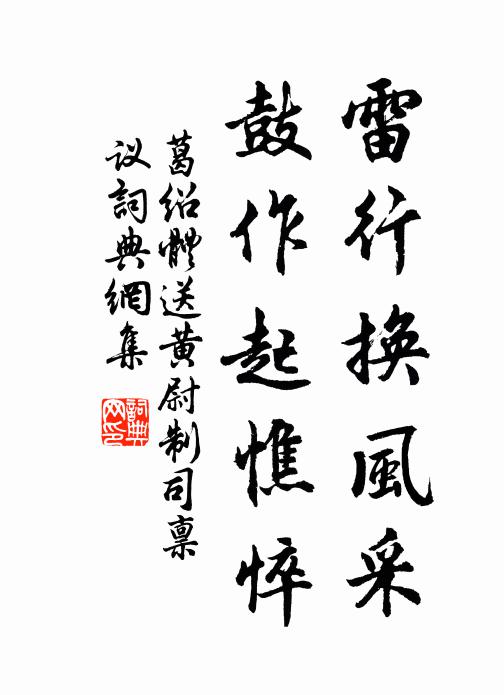 雷行換風采
鼓作起憔悴
葛绍體送黄尉制司禀
议詞典網集
詞典
网印